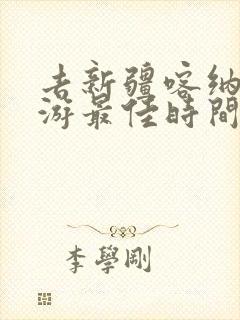 去新疆喀纳
游最佳時間
李學剛